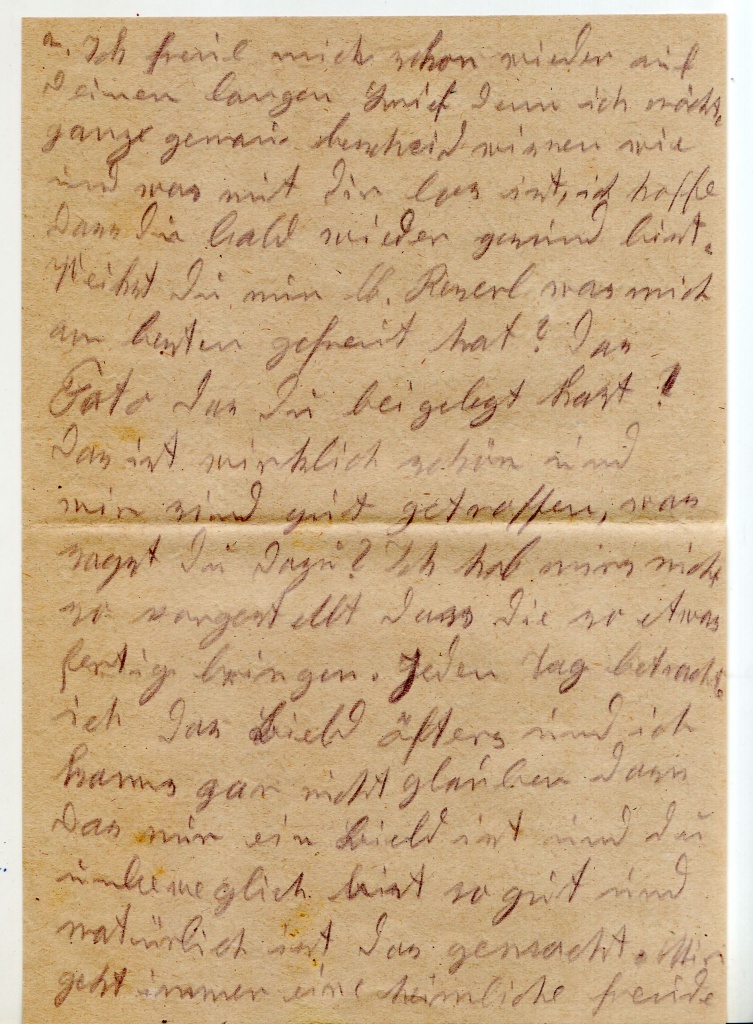 2. Ich freu mich schon wieder auf
deinen langen Brief denn ich möcht
ganz genau bescheid wissen wie
und was mit dir los ist, ich hoffe
dass du bald wieder gesund bist.
Weihst du nur lb. Reserl was mich
am besten gefreut hat? Das
Foto das du beigelegt hast!
Das ist wirklich schön und
wir sind gut getroffen, was
sagst du dazu? Ich hab mirs nicht
so vorgestellt dass die so etwas
fertig bringen. Jeden Tag betracht
ich das Bield öfters und ich
kanns gar nicht glauben dass
das nur ein Bield ist und du
unbeweglich bist so gut und
natürlich ist das gemacht. Mir
geht immer eine heimliche freude